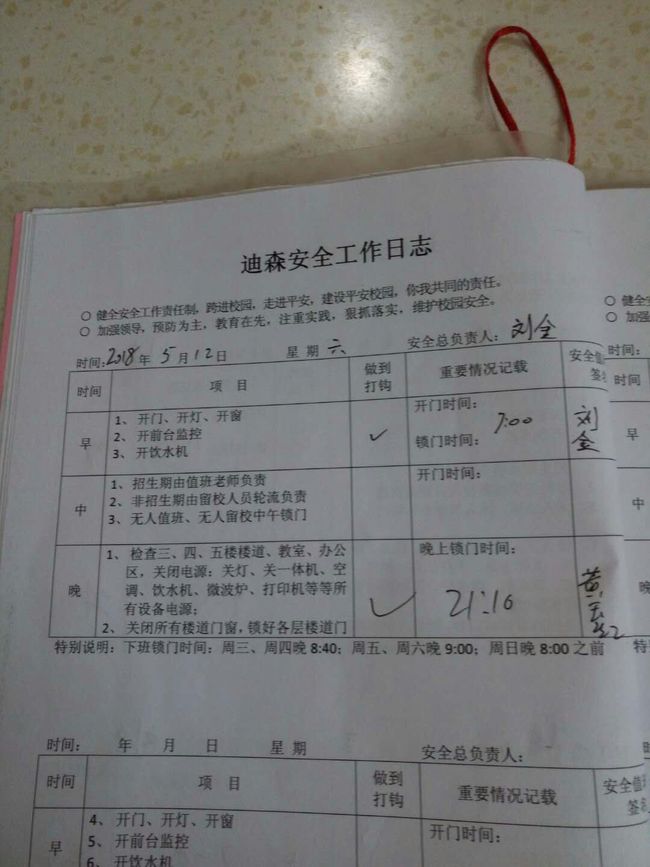 迪森安全工作日志
○ 健全安全工作责任制，跨进校园，走进平安，建设平安校园，你我共同的责任。
○ 加强领导，预防为主，教育在先，注重实践，狠抓落实，维护校园安全。
时间：2018年 5月12日 星期 六 安全总负责人：刘全
时间 项 目 做到打钩 重要情况记载 安全值 签名
早
1、 开门、开灯、开窗
2、 开前台监控
3、 开饮水机
✓
开门时间：
7:00
锁门时间：
刘金
中
1、 招生期由值班老师负责
2、 非招生期由留校人员轮流负责
3、 无人值班、无人留校中午锁门
开门时间：
晚
1、 检查三、四、五楼楼道、教室、办公
区，关闭电源：关灯、关一体机、空
调、饮水机、微波炉、打印机等等所
有设备电源；
2、 关闭所有楼道门窗，锁好各层楼道门
✓
晚上锁门时间：
21:10
黄
特别说明：下班锁门时间：周三、周四晚 8:40；周五、周六晚 9:00；周日晚 8:00 之前
时间： 年 月 日 星 期 安全总负责人：
时间 项 目 做到打钩 重要情况记载 安全值 签名
早
4、 开门、开灯、开窗
5、 开前台监控
6、 开饮水机
开门时间：
○ 健全
○ 加强
时间：
时间
早
中
晚